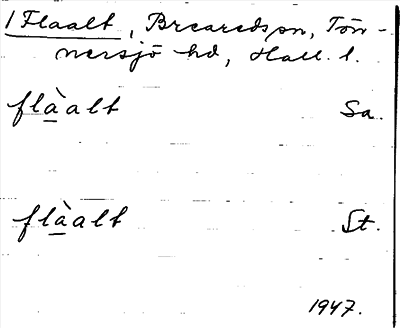 1 Flaalt, Breareds sn, Tön-
nersjö hd, Hall. l.
flàalt Sa.
flàalt St.
1947.